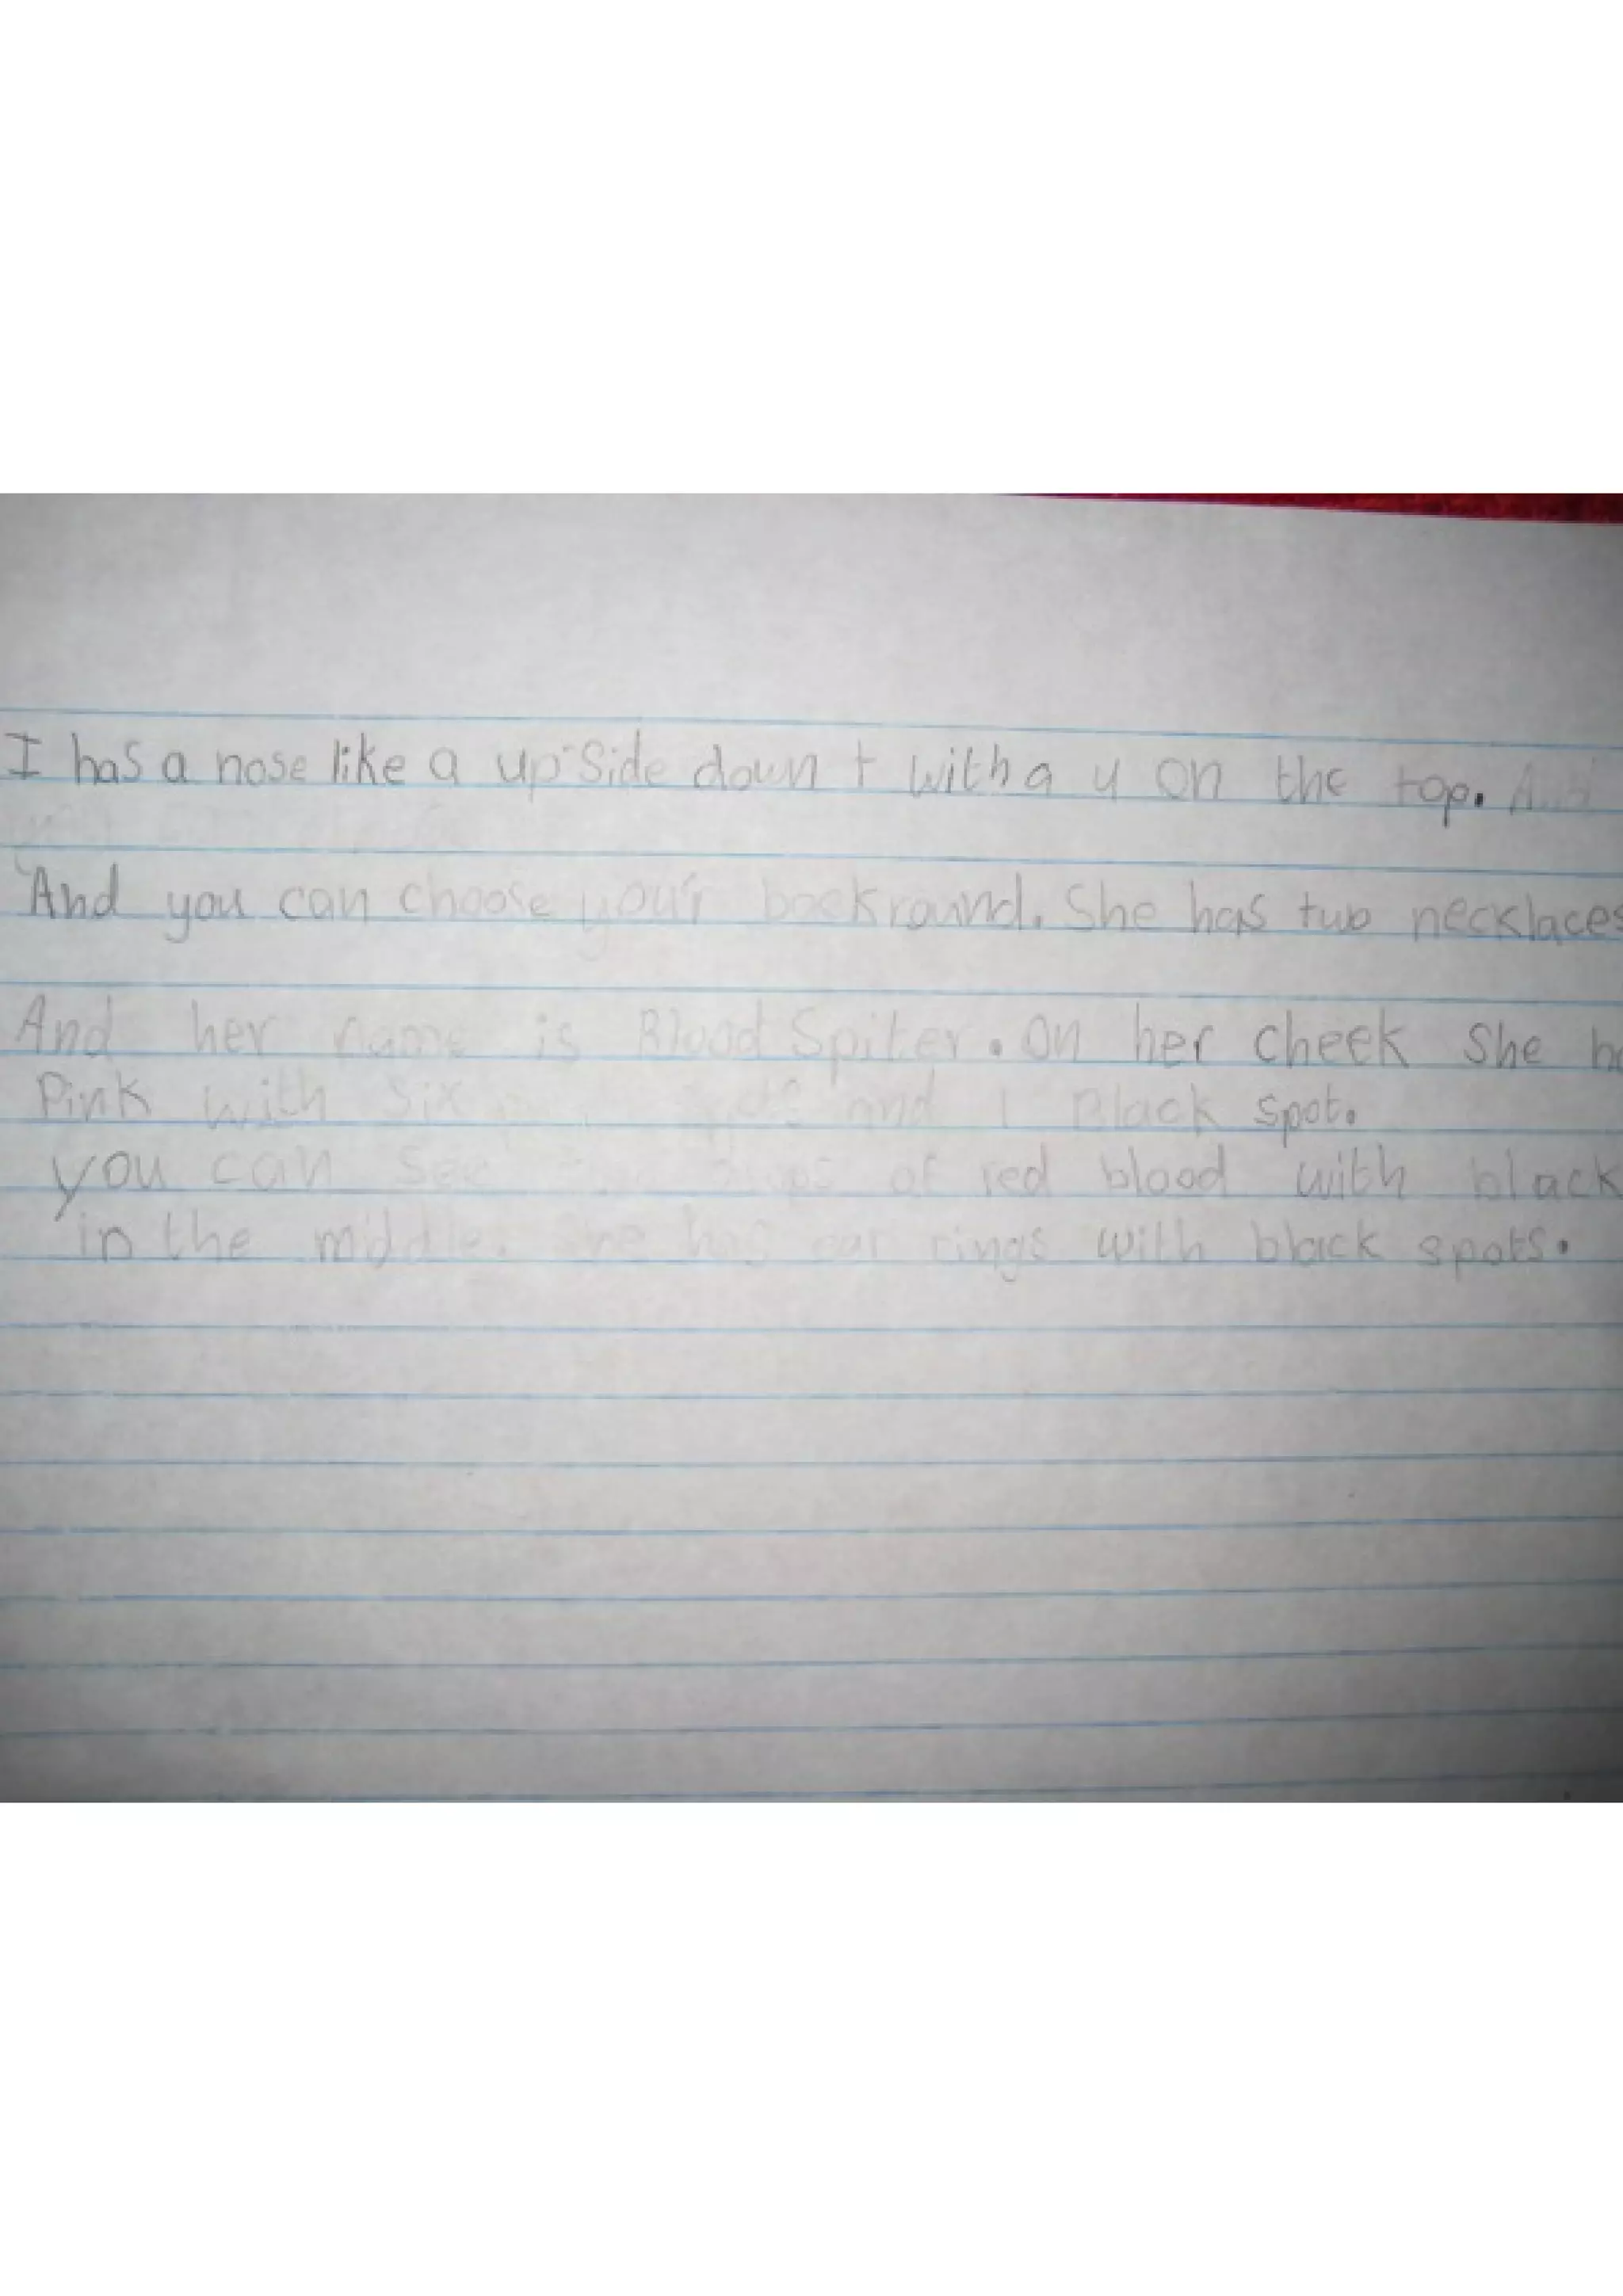 I has a nose like a up side down t with a u on the top.
And you can choose your backround. She has two necklaces
And her name is Blood Spiter. On her cheek She
Pink with six and 1 Black spot.
you can see of red blood with black
in the middle. She has ear rings with black spots.